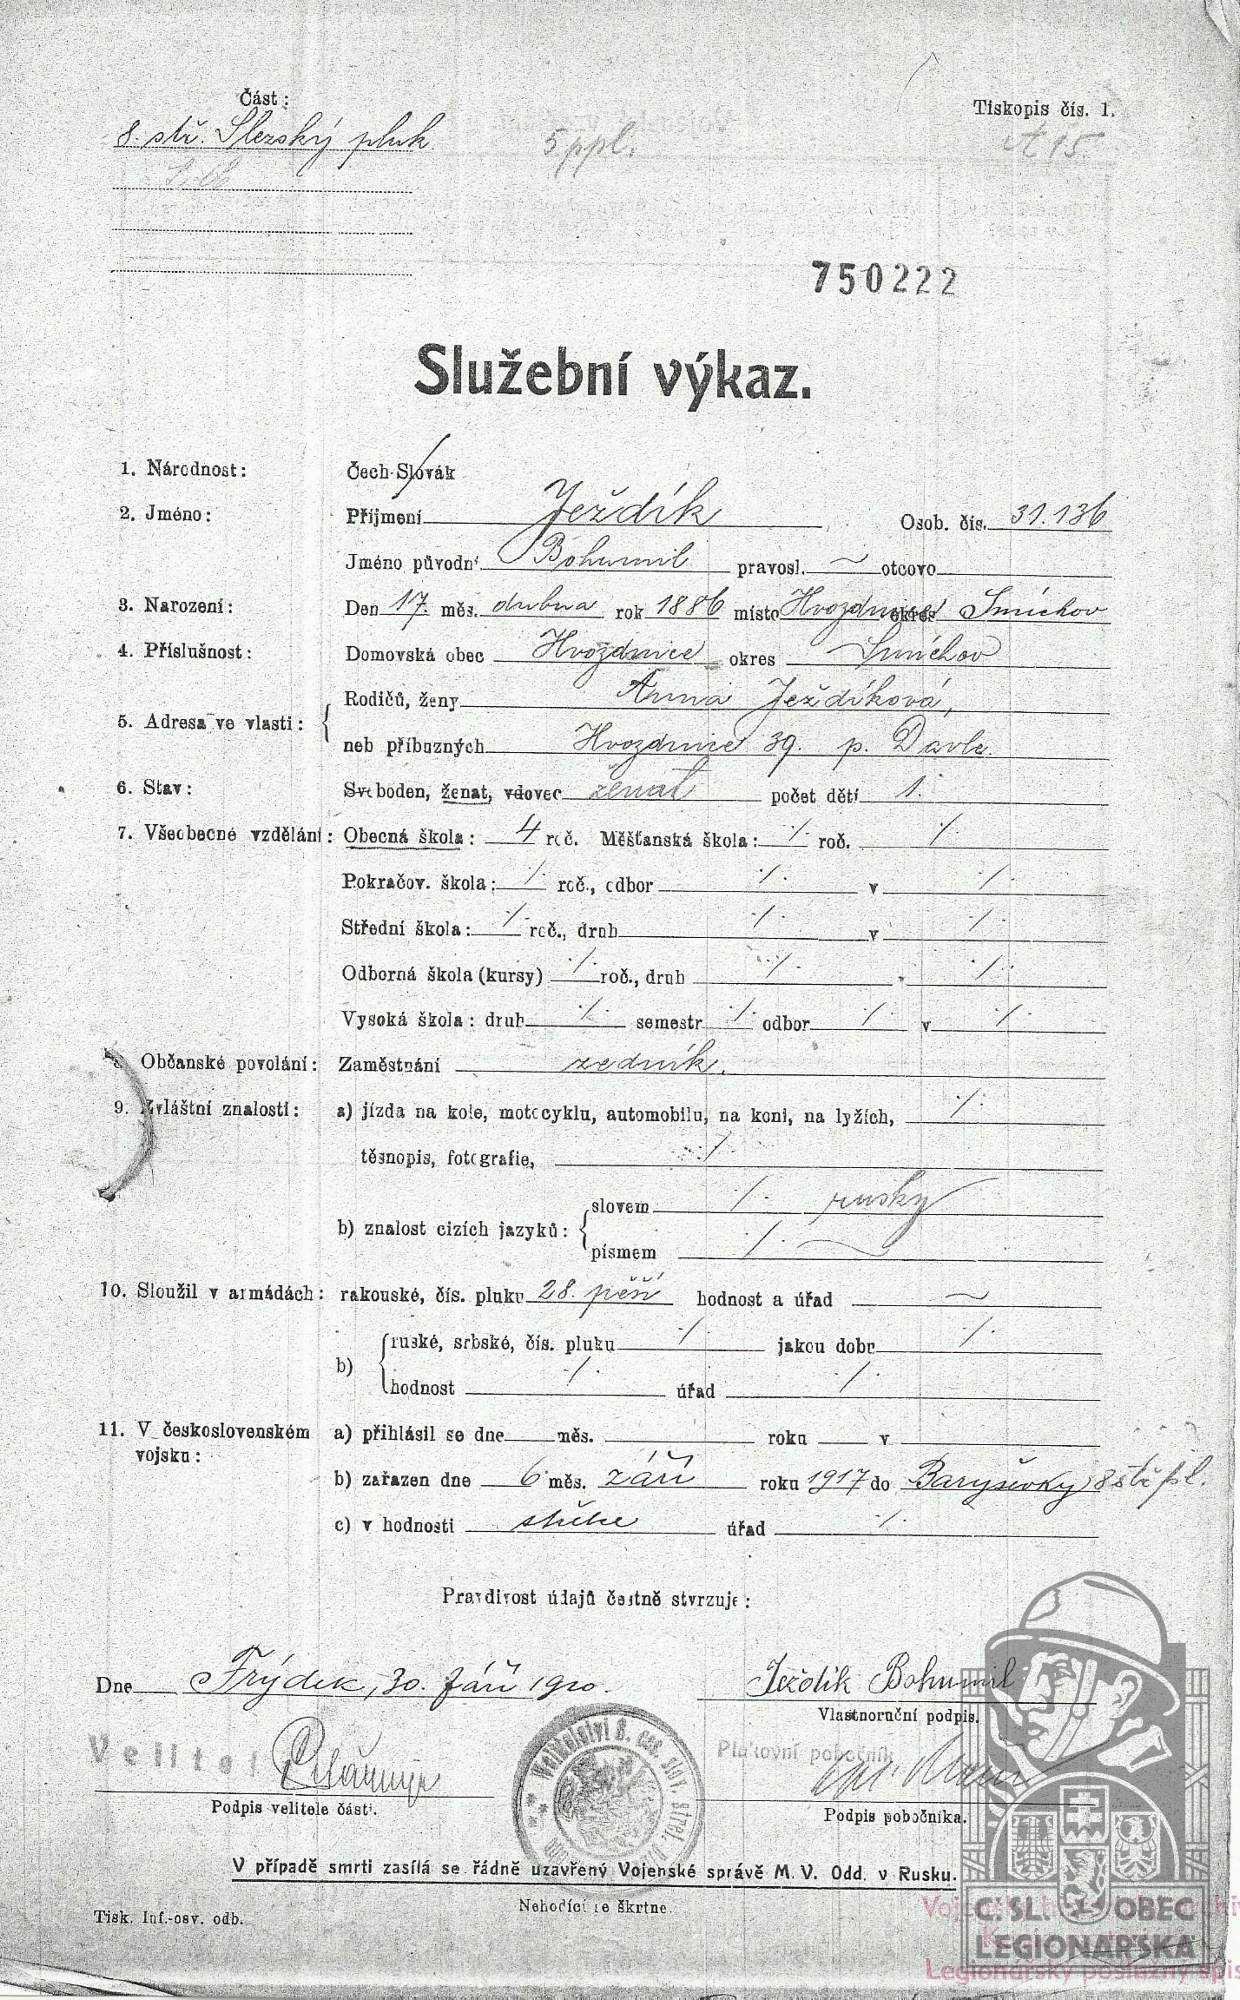 Část: Tiskopis čís. 1.
8. stř. Slezský pluk 5 ppl. A 15.
750222
Služební výkaz.
1. Národnost: Čech-Slovák
2. Jméno: Příjmení Ježdík Osob. čís. 31.136
Jméno původní Bohumil pravosl. ~ otcovo
3. Narození: Den 17. měs. dubna rok 1886 místo Hvozdnice okres Smíchov
4. Příslušnost: Domovská obec Hvozdnice okres Smíchov
Rodičů, ženy Anna Ježdíková,
5. Adresa ve vlasti: {
neb příbuzných Hvozdnice 39. p. Davle.
6. Stav: Svoboden, ženat, vdovec ženat počet dětí 1.
7. Všeobecné vzdělání: Obecná škola: 4 roč. Měšťanská škola: ·/. roč. ·/.
Pokračov. škola: ·/. roč., odbor ·/. v ·/.
Střední škola: ·/. roč., druh ·/. v ·/.
Odborná škola (kursy) ·/. roč., druh ·/. v ·/.
Vysoká škola: druh ·/. semestr ·/. odbor ·/. v ·/.
8. Občanské povolání: Zaměstnání zedník.
9. Zvláštní znalosti: a) jízda na kole, motocyklu, automobilu, na koni, na lyžích, ·/.
těsnopis, fotografie, ·/.
slovem ·/. rusky
b) znalost cizích jazyků: {
písmem ·/.
10. Sloužil v armádách: rakouské, čís. pluku 28. pěší hodnost a úřad ~
ruské, srbské, čís. pluku ·/. jakou dobu ·/.
b) {
hodnost ·/. úřad ·/.
11. V československém vojsku: a) přihlásil se dne měs. roku v
b) zařazen dne 6 měs. září roku 1917 do Baryševky 8 stř. pl.
c) v hodnosti střelce úřad ·/.
Pravdivost údajů čestně stvrzuje:
Dne Frýdek, 30. září 1920. Ježdík Bohumil
Vlastnoruční podpis.
Velitel Plukovní pobočník
Podpis velitele části. Podpis pobočníka.
Velitelství 8. čes. slov. střel.
V případě smrti zasílá se řádně uzavřený Vojenské správě M. V. Odd. v Rusku.
Nehodící se škrtne.
Tisk. Inf.-osv. odb.
Č. SL. OBEC
LEGIONÁŘSKÁ
Legionářský poslužný spis